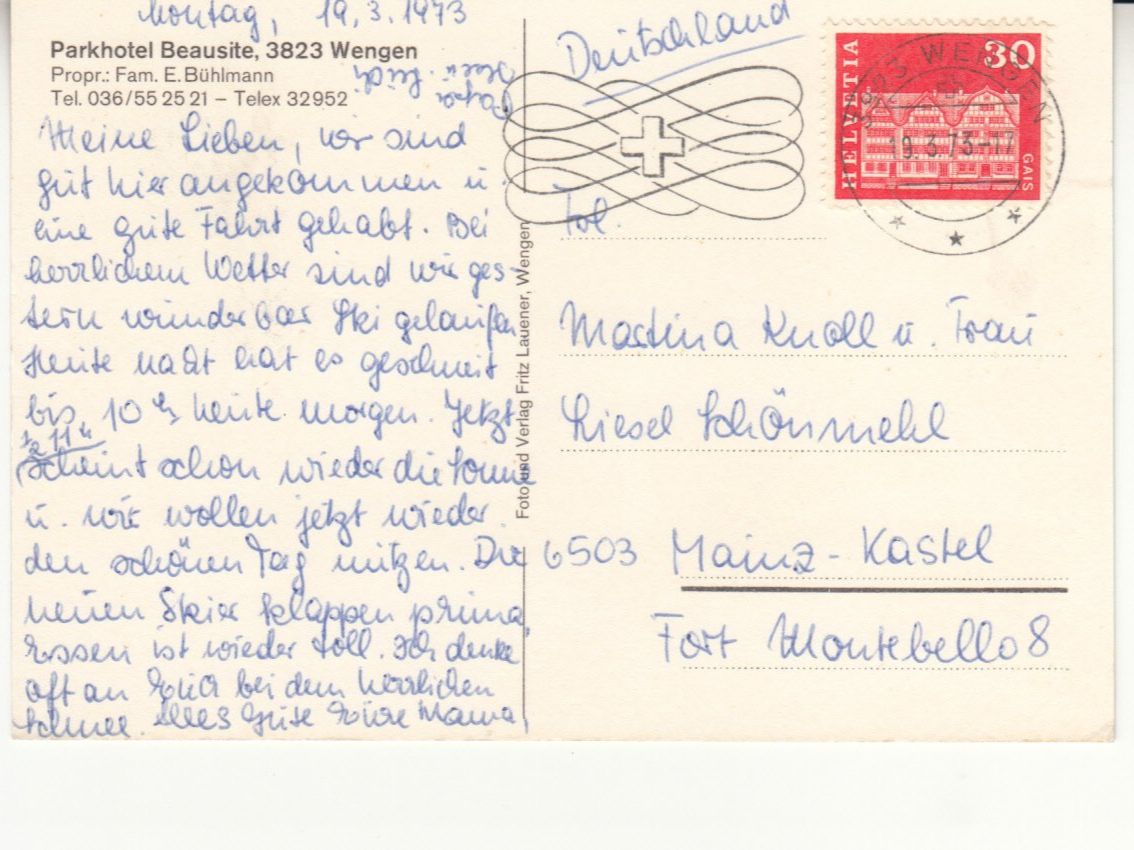 Montag, 19.3.1973
Parkhotel Beausite, 3823 Wengen
Propr.: Fam. E. Bühlmann
Tel. 036/55 25 21 – Telex 32952
Meine Lieben, wir sind
gut hier angekommen u.
eine gute Fahrt gehabt. Bei
herrlichem Wetter sind wir ges-
tern wunderbar Ski gelaufen
Heute nacht hat es geschneit
bis 10 h heute morgen. Jetzt
1/2 11 h
scheint schon wieder die Sonne
u. wir wollen jetzt wieder
den schönen Tag nützen. Die
neuen Skier klappen prima,
Essen ist wieder toll. Ich denke
oft an Euch bei dem herrlichen
Schnee. Alles Gute Eure Mama,
Papa
Foto und Verlag Fritz Lauener, Wengen
Deutschland
HELVETIA
30
GAIS
3823 WENGEN
19.3.73-17
Frl.
Martina Knoll u. Frau
Liesel Schönmehl
6503 Mainz-Kastel
Fort Montebello 8